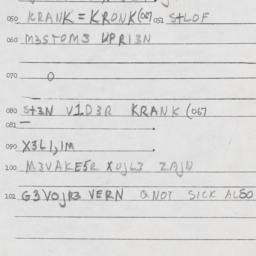 050 KRANK = KRONK (067 052 S+LOF
060 M3STOM3 UPRI3N
070 O
080 S+3N V1D3R KRANK (067
081 —
090 X3L1,1M
100 M3VAKE5R XOJL3 ZAJN
102 G3VOJR3 VERN QNOT SICK ALSO